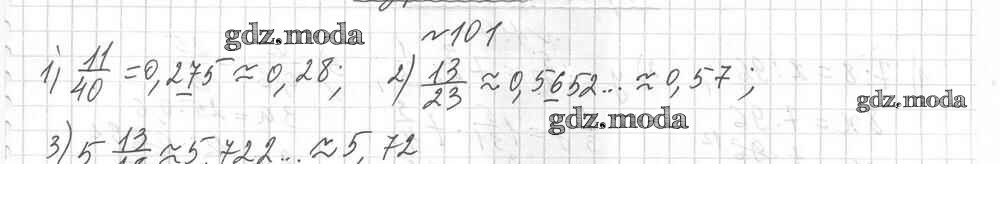 gdz.moda
~101
1) 11/40 = 0,275 ≈ 0,28; 2) 13/23 ≈ 0,5652... ≈ 0,57;
gdz.moda
gdz.moda
3) 5 13/18 ≈ 5,722... ≈ 5,72